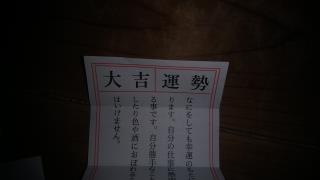 大吉運勢
なにをしても幸運のも
ります。自分の仕事に
る事です。自分勝手な
したり色や酒におぼれ
はいけません。